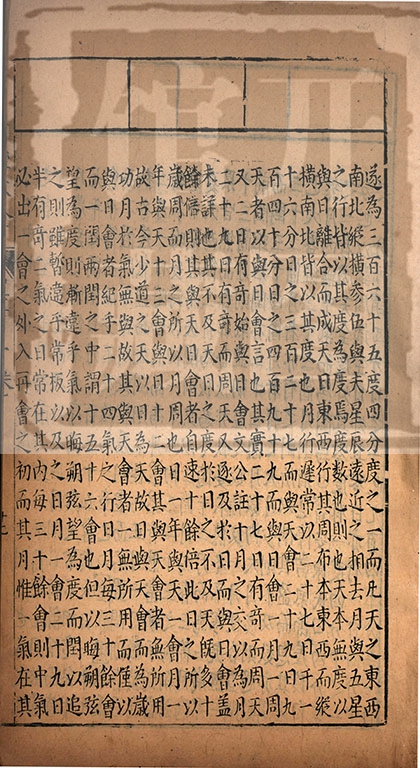 遂為三百六十五度四分度之一而凡天之東西
南北縱橫參伍與夫星辰遠近之相去月與五星
之行皆以其度為度焉度數也則也天本無度以
與日離合而成天日東西行其周布本東西而縱
橫南北皆以是度也月行遲常以二十七日千一
十六分日之三百二十七而與天會二十九日九
百四十分日之四百九十九而與日會一月一周
天者以與日會言也其實二十七日有奇而周天
又二日有奇始與日會文公註十月之交以為月
二十九日有奇而周天又逐及於日而與日會蓋
未詳也其不及天之度於日之不及天既多十
餘倍則其與天會者自速十餘倍此日之所以
歲周而月之所以月周也日一年與天一會月所
年與天十三會與日十二會而日與天會者無所用
故古今少道之天與日為天故日與天會而為歲
功月於氣無與故其與天會者一無所用而僅
與日會者紀乎二十四氣之日每三十餘會
而一閏兩閏之中謂十五十六會也但以晦朔弦
望為度則漸遠乎氣以晦朔弦望為度而閏以追
之則雖暫遠乎常扳以及之日月一會二十九日
半有奇二氣之日常在其內每三十餘會則中氣
必出一會之外入再會之初而其月惟一氣在其